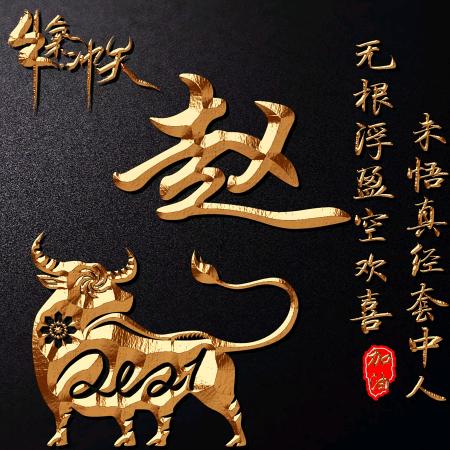 牛气冲天
赵
未悟真经套中人
无根浮盈空欢喜
加油
2021